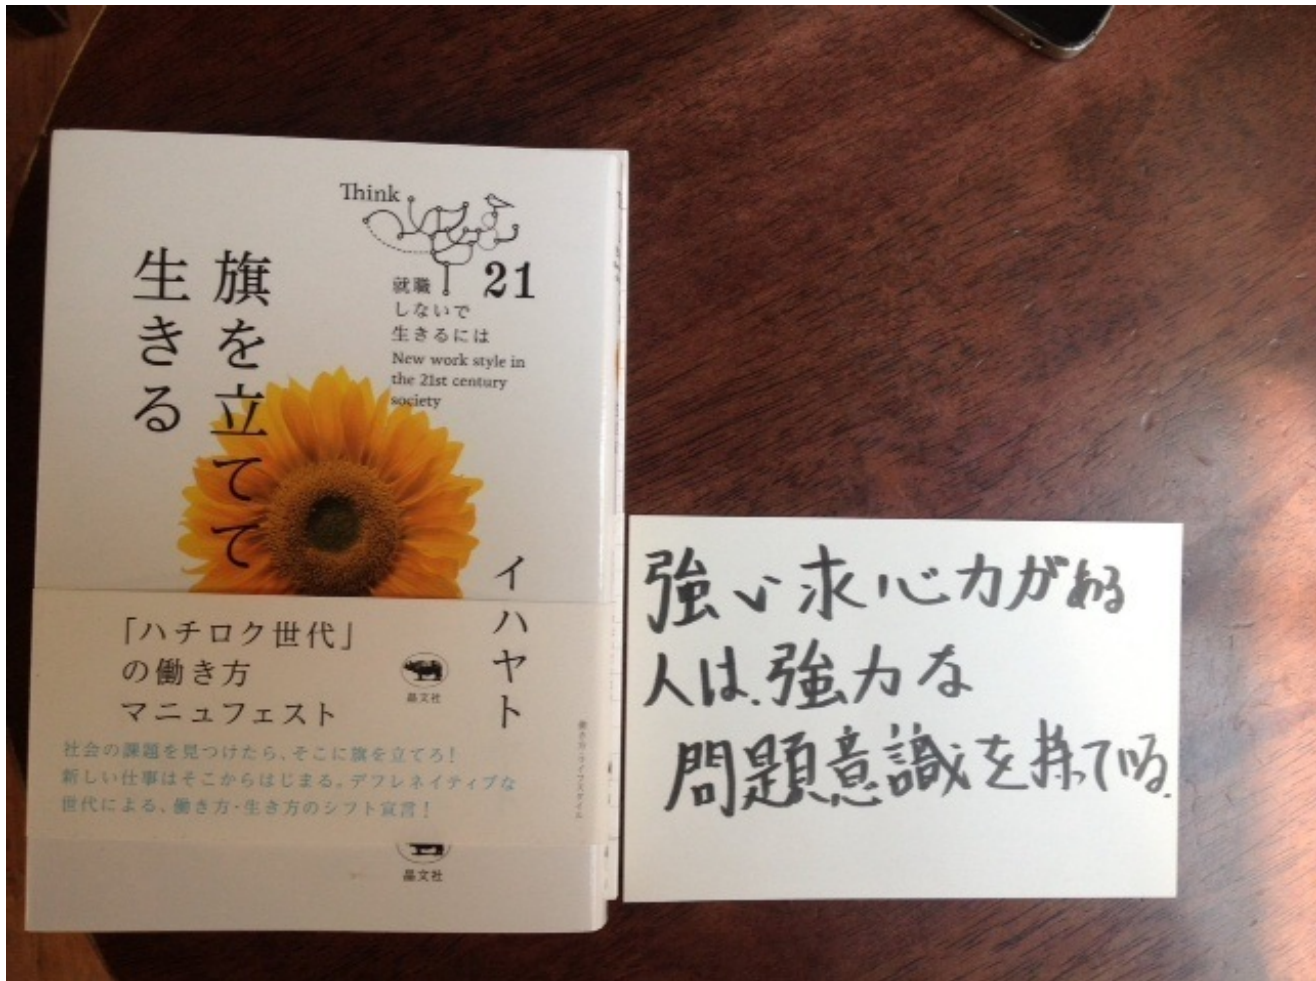 Think
21
就職
しないで
生きるには
New work style in
the 21st century
society
旗を立てて
生きる
イハヤト
「ハチロク世代」
の働き方
マニュフェスト
晶文社
社会の課題を見つけたら、そこに旗を立てろ!
新しい仕事はそこからはじまる。デフレネイティブな
世代による、働き方・生き方のシフト宣言!
働き方・ライフスタイル
晶文社
強い求心力がある
人は、強力な
問題意識を持っている。